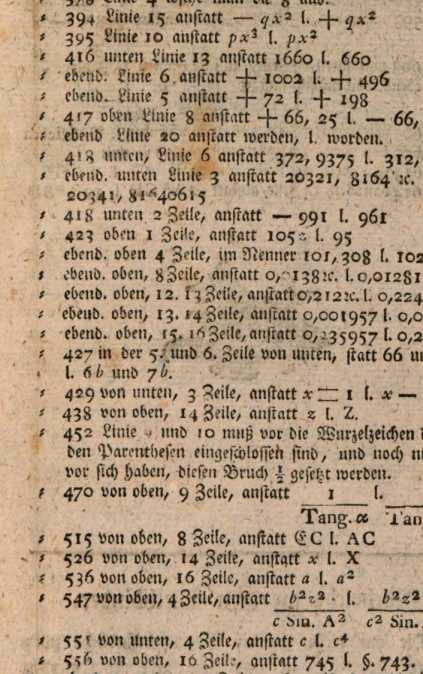 ⸗ 394 Linie 15 anstatt — qx² l. + qx²
⸗ 395 Linie 10 anstatt px³ l. px²
⸗ 416 unten Linie 13 anstatt 1660 l. 660
⸗ ebend. Linie 6 anstatt + 1002 l. + 496
⸗ ebend. Linie 5 anstatt + 72 l. + 198
⸗ 417 oben Linie 8 anstatt + 66, 25 l. — 66,
⸗ ebend Linie 20 anstatt werden, l. worden.
⸗ 418 unten, Linie 6 anstatt 372, 9375 l. 312,
⸗ ebend. unten Linie 3 anstatt 20321, 8164 ꝛc.
20341, 81640615
⸗ 418 unten 2 Zeile, anstatt — 991 l. 961
⸗ 423 oben 1 Zeile, anstatt 105 l. 95
⸗ ebend. oben 4 Zeile, im Nenner 101, 308 l. 102
⸗ ebend. oben, 8 Zeile, anstatt 0,0138ꝛc. l. 0,01281
⸗ ebend. oben, 12. 13 Zeile, anstatt 0,212ꝛc. l. 0,224
⸗ ebend. oben, 13. 14 Zeile, anstatt 0,001957 l. 0,0
⸗ ebend. oben, 15. 16 Zeile, anstatt 0,235957 l. 0,2
⸗ 427 in der 5. und 6. Zeile von unten, statt 66
l. 6b und 7b.
⸗ 429 von unten, 3 Zeile, anstatt x = 1 l. x —
⸗ 438 von oben, 14 Zeile, anstatt z l. Z.
⸗ 452 Linie 9 und 10 muß vor die Wurzelzeichen
den Parenthesen eingeschlossen sind, und noch
vor sich haben, diesen Bruch ½ gesetzt werden.
⸗ 470 von oben, 9 Zeile, anstatt 1 l.
Tang. α Tan
⸗ 515 von oben, 8 Zeile, anstatt EC l. AC
⸗ 526 von oben, 14 Zeile, anstatt x l. X
⸗ 536 von oben, 16 Zeile, anstatt a l. a²
⸗ 547 von oben, 4 Zeile, anstatt b²z² l. b²z²
c Sin. A² c² Sin.
⸗ 551 von unten, 4 Zeile, anstatt c l. c⁴
⸗ 556 von oben, 16 Zeile, anstatt 745 l. §. 743.